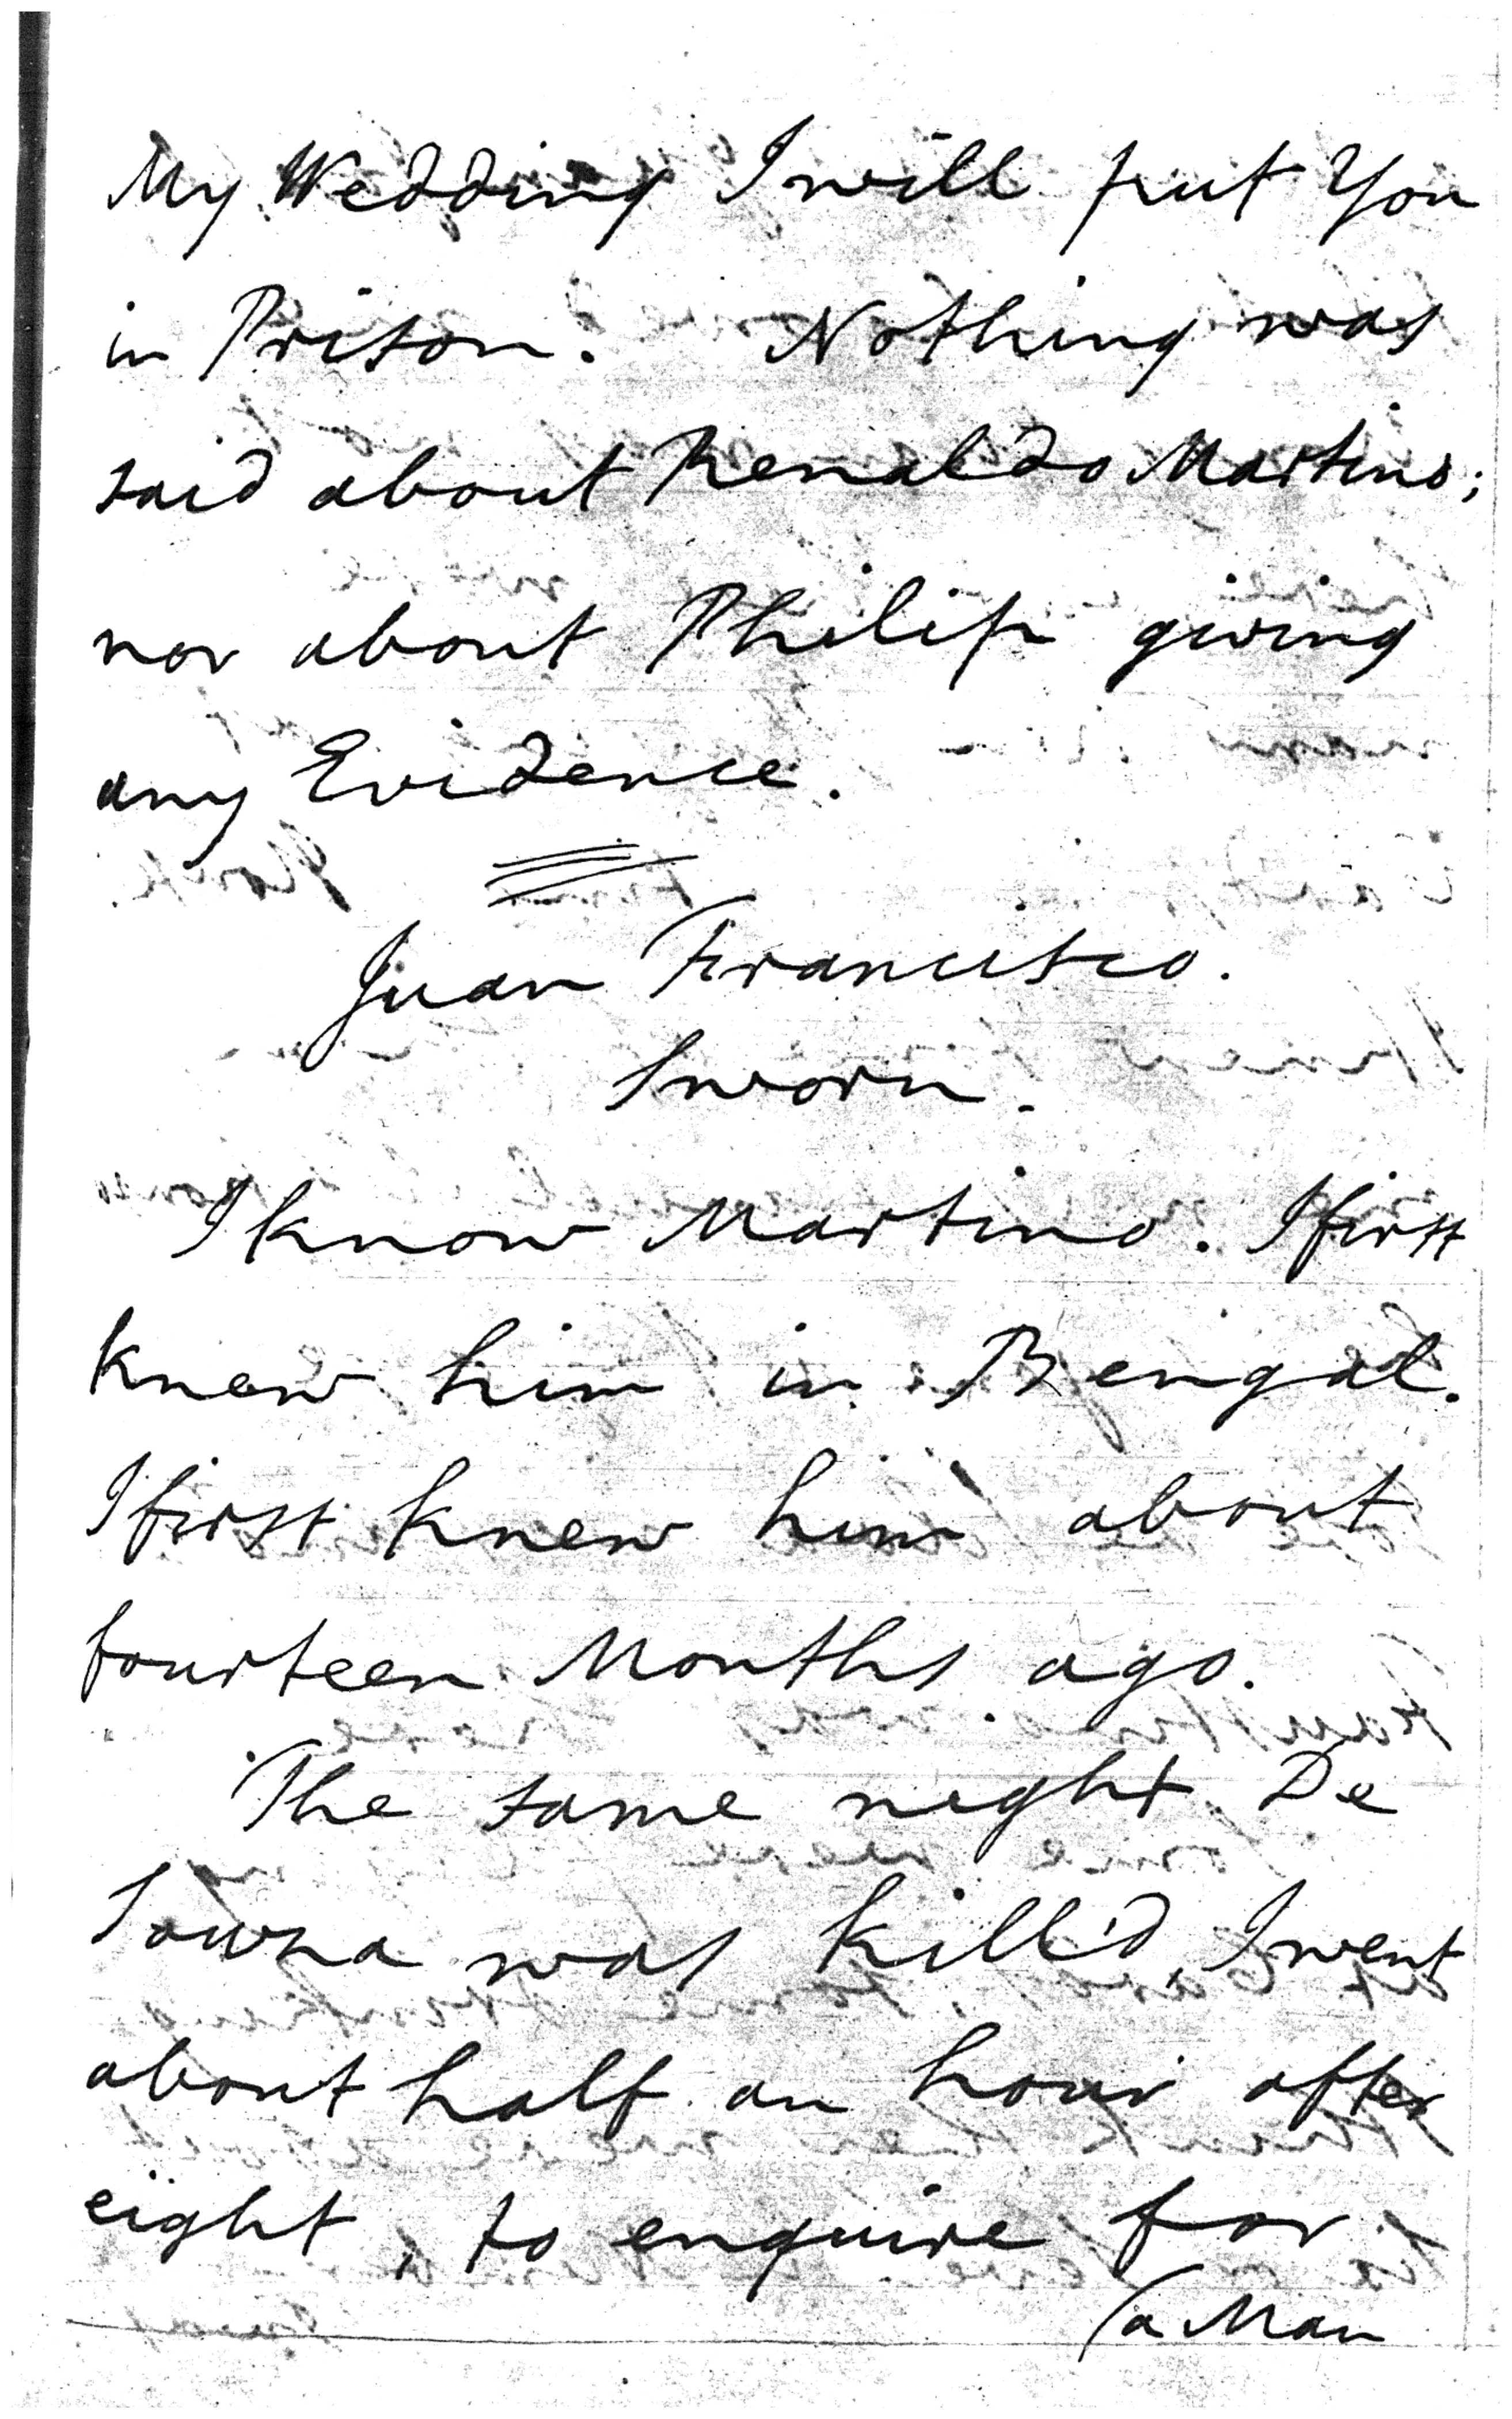 My Wedding I will put You
in Prison. Nothing was
said about Renaldo Martino;
nor about Philip giving
any Evidence.
Juan Francisco.
Sworn.
I know Martino. I first
knew him in Bengal.
I first knew him about
fourteen Months ago.
The same night De
Souza was kill'd, I went
about half an hour after
eight, to enquire for
(a Man